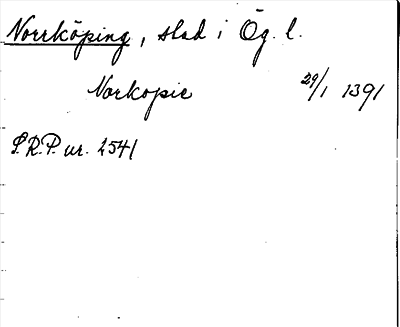 Norrköping, stad i Ög. l.
Norkopie 29/1 1391
S.R.P. nr. 2541